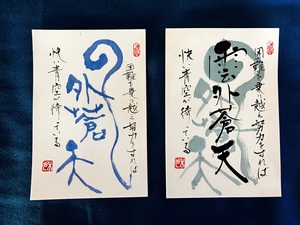 困難を乗り越え努力をすれば
外蒼天
快い青空が待っている
困難を乗り越え努力をすれば
雲外蒼天
快い青空が待っている